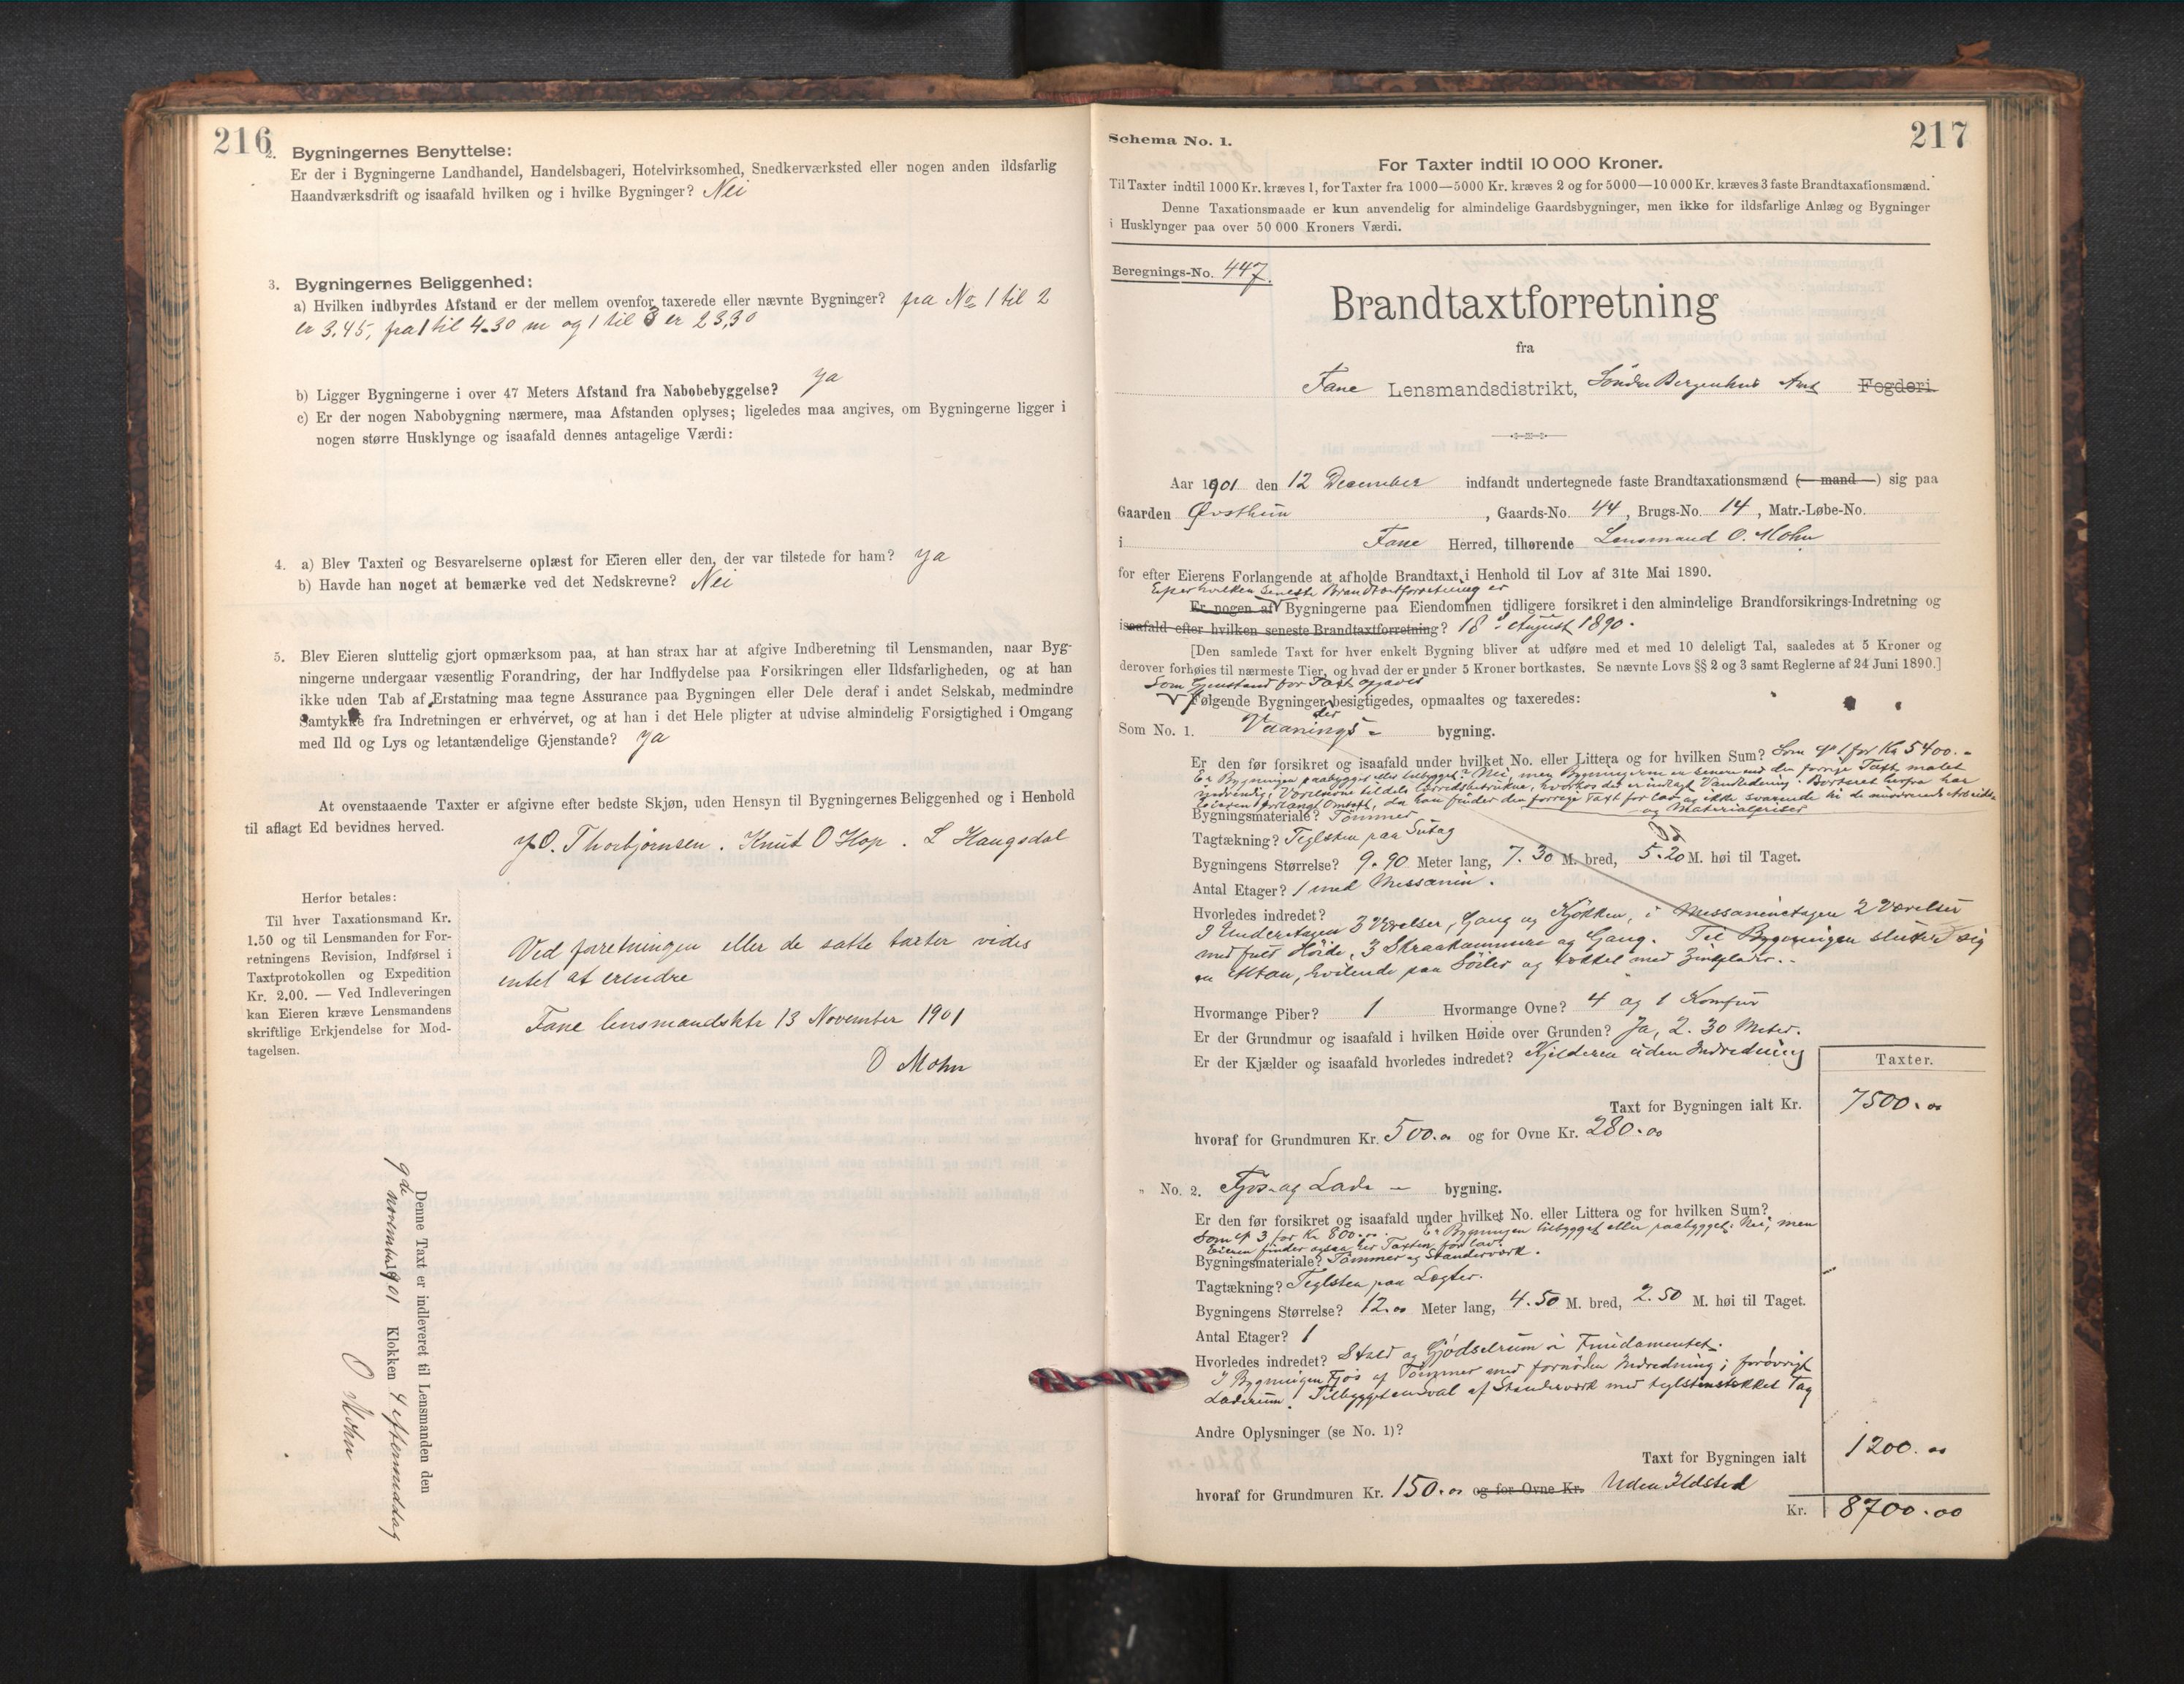 216
2. Bygningernes Benyttelse:
Er der i Bygningerne Landhandel, Handelsbageri, Hotelvirksomhed, Snedkerværksted eller nogen anden ildsfarlig
Haandværksdrift og isaafald hvilken og i hvilke Bygninger? Nei
3. Bygningernes Beliggenhed:
a) Hvilken indbyrdes Afstand er der mellem ovenfor taxerede eller nævnte Bygninger? fra No 1 til 2
er 3.45, fra 1 til 4-30 m og 1 til 3 er 23,30
b) Ligger Bygningerne i over 47 Meters Afstand fra Nabobebyggelse? ja
c) Er der nogen Nabobygning nærmere, maa Afstanden oplyses; ligeledes maa angives, om Bygningerne ligger i
nogen større Husklynge og isaafald dennes antagelige Værdi:
4. a) Blev Taxten og Besvarelserne oplæst for Eieren eller den, der var tilstede for ham? ja
b) Havde han noget at bemærke ved det Nedskrevne? Nei
5. Blev Eieren sluttelig gjort opmærksom paa, at han strax har at afgive Indberetning til Lensmanden, naar Byg-
ningerne undergaar væsentlig Forandring, der har Indflydelse paa Forsikringen eller Ildsfarligheden, og at han
ikke uden Tab af Erstatning maa tegne Assurance paa Bygningen eller Dele deraf i andet Selskab, medmindre
Samtykke fra Indretningen er erhvervet, og at han i det Hele pligter at udvise almindelig Forsigtighed i Omgang
med Ild og Lys og letantændelige Gjenstande? ja
At ovenstaaende Taxter er afgivne efter bedste Skjøn, uden Hensyn til Bygningernes Beliggenhed og i Henhold
til aflagt Ed bevidnes herved.
O. Thorbjørnsen . Knut O Hop . L Haugsdal
Herfor betales:
Til hver Taxationsmand Kr.
1.50 og til Lensmanden for For-
retningens Revision, Indførsel i
Taxtprotokollen og Expedition
Kr. 2.00. — Ved Indleveringen
kan Eieren kræve Lensmandens
skriftlige Erkjendelse for Mod-
tagelsen.
Ved forretningen eller de satte taxter vides
intet at erindre
Fane lensmandsktr 13 November 1901
O Mohn
Denne Taxt er indleveret til Lensmanden den
9de november 1901 Klokken 4 eftermiddag
O Mohn
217
Schema No. 1.
For Taxter indtil 10 000 Kroner.
Til Taxter indtil 1000 Kr. kræves 1, for Taxter fra 1000—5000 Kr. kræves 2 og for 5000—10 000 Kr. kræves 3 faste Brandtaxationsmænd.
Denne Taxationsmaade er kun anvendelig for almindelige Gaardsbygninger, men ikke for ildsfarlige Anlæg og Bygninger
i Husklynger paa over 50 000 Kroners Værdi.
Beregnings-No. 447.
Brandtaxtforretning
fra
Fane Lensmandsdistrikt, Søndre Bergenhus Amt Fogderi.
Aar 1901 den 12 December indfandt undertegnede faste Brandtaxationsmænd (— mand —) sig paa
Gaarden Øvsthun , Gaards-No. 44 , Brugs-No. 14 , Matr.-Løbe-No.
i Fane Herred, tilhørende Lensmand O. Mohn
for efter Eierens Forlangende at afholde Brandtaxt i Henhold til Lov af 31te Mai 1890.
Efter hvilken seneste Brandtaxtforretning er
Er nogen af Bygningerne paa Eiendommen tidligere forsikret i den almindelige Brandforsikrings-Indretning og
isaafald efter hvilken seneste Brandtaxtforretning? 18 August 1890.
[Den samlede Taxt for hver enkelt Bygning bliver at udføre med et med 10 deleligt Tal, saaledes at 5 Kroner og
derover forhøies til nærmeste Tier, og hvad der er under 5 Kroner bortkastes. Se nævnte Lovs §§ 2 og 3 samt Reglerne af 24 Juni 1890.]
Som Gjenstand for Taxt opgaves
Følgende Bygninger der besigtigedes, opmaaltes og taxeredes:
Som No. 1. Vaanings- bygning.
Er den før forsikret og isaafald under hvilket No. eller Littera og for hvilken Sum? Som No 1 for Kr 5400.-
Er Bygningen paabygget eller tilbygget? Nei, men Bygningerne er senere end den forrige Taxt malet
indvendig, Værelserne tildels
Eieren forlangt Omtaxt, da han finder den forrige Taxt for lav og ikke svarende til de nuværende Arbeids
og Materialpriser
Bygningsmateriale? Tømmer
Tagtækning? Teglsten paa Sutag
Bygningens Størrelse? 9.90 Meter lang, 7.30 M. bred, 5.20 M. høi til Taget.
Antal Etager? 1 med Messanin.
Hvorledes indredet?
I Underetagen 3 Værelser, Gang og Kjøkken, i Messaninetagen 2 Værelser
med fuld Høide, 3 Skraakammere og Gang. Til Bygningen slutter sig
en Altan, hvilende paa Søiler og tækket med Zinkplader.-
Hvormange Piber? 1 Hvormange Ovne? 4 og 1 Komfur
Er der Grundmur og isaafald i hvilken Høide over Grunden? Ja, 2.30 Meter.
Er der Kjælder og isaafald hvorledes indredet? Kjelderen uden Indredning
Taxter.
Taxt for Bygningen ialt Kr. 7500.00
hvoraf for Grundmuren Kr. 500.00 og for Ovne Kr. 280.00
" No. 2. Fjøs- og Lade- bygning.
Er den før forsikret og isaafald under hvilket No. eller Littera og for hvilken Sum?
Som No 3 for Kr 800.00. Er Bygningen tilbygget eller paabygget: Nei, men
Eieren finder ogsaa her Taxten for lav.
Bygningsmateriale? Tømmer og Standerværk.
Tagtækning? Teglsten paa Lægter.
Bygningens Størrelse? 12.00 Meter lang, 4.50 M. bred, 2.50 M. høi til Taget.
Antal Etager? 1
Hvorledes indredet? Stald og Gjødselrum i Fundamentet.
I Bygningen Fjøs af Tømmer med fornøden Indredning; forøvrigt
Laderum. Tilbygget en Sval af Standerværk med teglstenstækket Tag
Andre Oplysninger (se No. 1)?
Taxt for Bygningen ialt 1200.00
hvoraf for Grundmuren Kr. 150.00 og for Ovne Kr. Uden Ildsted
Kr. 8700.00